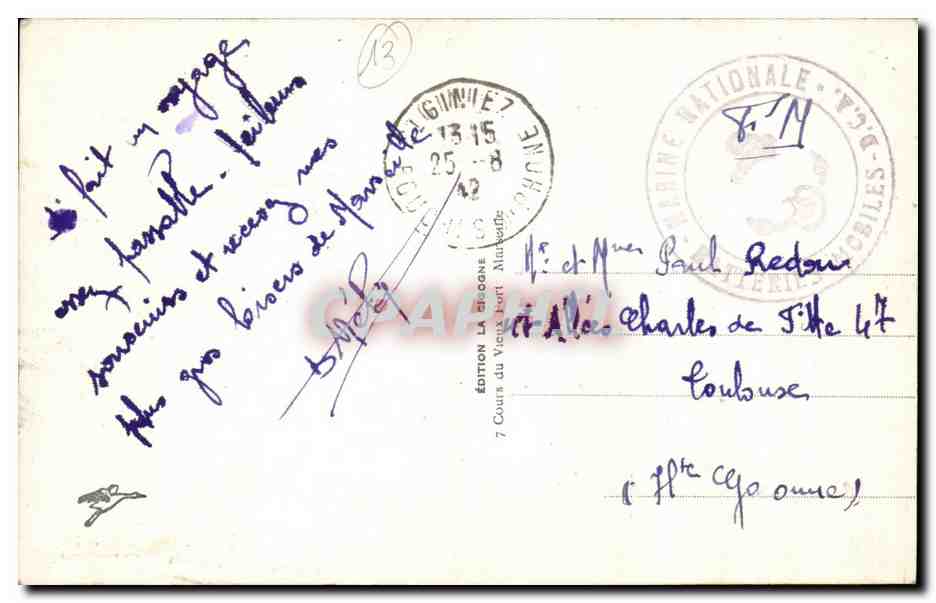 13
fait un voyage
assez passable. Meilleurs
souvenirs et recevez mes
plus gros bisous de Marseille
MARINE NATIONALE - D.C.A.
BATTERIES MOBILES
F.M
13 15
25 - 8
42
BOUCHES DU RHONE
Mr. et Mme Paul Redon
Allées Charles de Fitte 47
Toulouse
(Hte Garonne)
ÉDITION LA CIGOGNE
7 Cours du Vieux Port Marseille
CPAPHIL